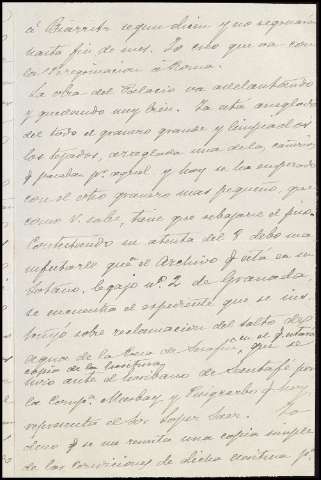 á Biarritz segun dicen y no regresarán
hasta fin de mes. Yo creo que va con
la Peregrinacion á Roma.
La obra del Palacio va adelantando
y quedando muy bien. Ya está arreglado
del todo el granero grande y limpiados
los tejados, arreglada una de la, cañerias
q pasada pr. aquel, y hoy se ha empezado
con el otro granero mas pequeño, que
como V. sabe, tiene que rebajarse el piso.
Contestando su atenta del 8 debo ma
nifestarle que en el Archivo q está en su
sotano, legajo nº 2 de Granada
se encuentra el espediente que se ins
truyó sobre reclamacion del salto de
agua de la de en el q estará
copia de la escritura que se
hizo ante el escribano de Santafé por
la Compª. y Puigcerbe q hoy
representa el Sor Lopez Saez. Yo
deseo q se me remita una copia simple
de las condiciones de dicha escritura pª